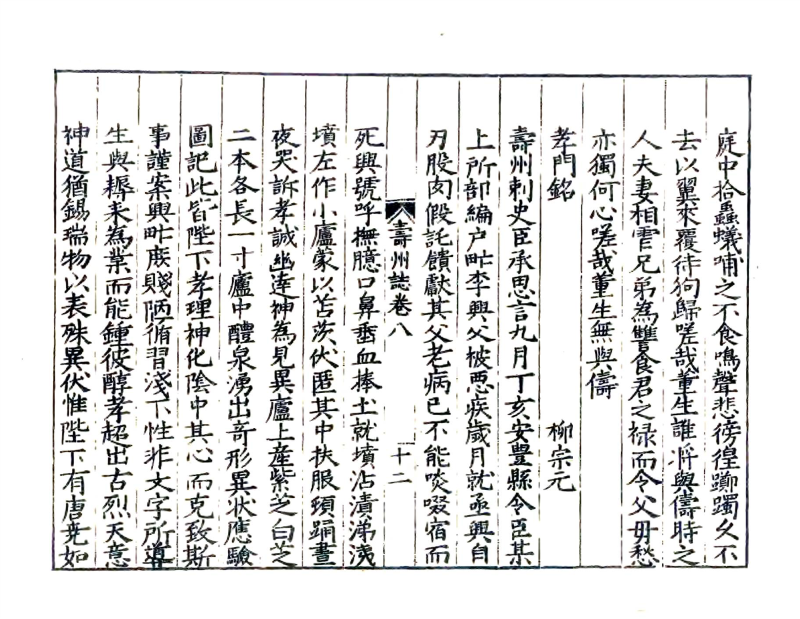 庭中拾蟲蟻哺之不食鳴聲悲徬徨躑躅久不
去以翼來覆待狗歸嗟哉董生誰將與儔時之
人夫妻相虐兄弟為讐食君之祿而令父母愁
亦獨何心嗟哉董生無與儔
孝門銘 柳宗元
壽州刺史臣承思言九月丁亥安豊縣令臣某
上所部編户甿李興父被惡疾歲月就亟興自
刃股肉假託饋獻其父老病已不能啖啜宿而
壽州誌卷八 十二
死興號呼撫臆口鼻垂血捧土就墳沾漬涕洟
墳左作小廬蒙以苫茨伏匿其中扶服頚踊晝
夜哭訴孝誠幽達神為見異廬上産紫芝白芝
二本各長一寸廬中醴泉湧出奇形異状應驗
圖記此皆陛下孝理神化陰中其心而克致斯
事謹案興甿庶賤陋循習淺下性非文字所導
生與耨耒為業而能鍾彼醇孝超出古烈天意
神道猶錫瑞物以表殊異伏惟陛下有唐尭如